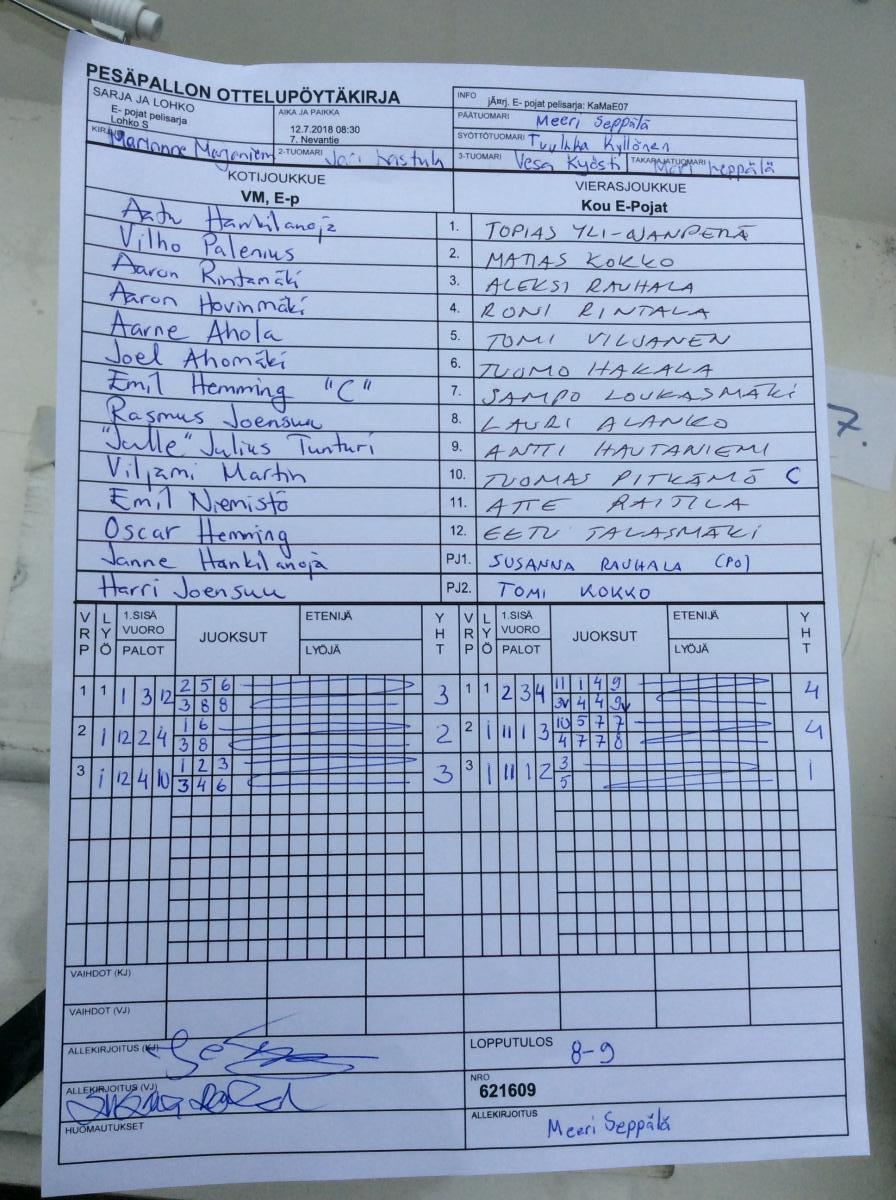 PESÄPALLON OTTELUPÖYTÄKIRJA
SARJA JA LOHKO
E- pojat pelisarja
Lohko S
AIKA JA PAIKKA
12.7.2018 08:30
7. Nevantie
INFO
jÄ¤rj. E- pojat pelisarja: KaMaE07
PÄÄTUOMARI Meeri Seppälä
SYÖTTÖTUOMARI Tuulikka Kyllönen
Marianne
2-TUOMARI Jari
3-TUOMARI Vesa Kyösti
TAKARAJATUOMARI Meri Seppälä
KOTIJOUKKUE
VM, E-p
VIERASJOUKKUE
Kou E-Pojat
Aatu Hankilanoja 1. TOPIAS YLI-AJANPERÄ
Vilho Palenius 2. MATIAS KOKKO
Aaron Rintamäki 3. ALEKSI RAUHALA
Aaron Hovinmäki 4. RONI RINTALA
Aarne Ahola 5. TOMI VILJANEN
Joel Ahomäki 6. TUOMO HAKALA
Emil Hemming "C" 7. SAMPO LOUKASMÄKI
Rasmus Joensuu 8. LAURI ALANKO
"Julle" Julius Tunturi 9. ANTTI HAUTANIEMI
Viljami Martin 10. TUOMAS PITKÄMÖ C
Emil Niemistö 11. ATTE RAITILA
Oscar Hemming 12. EETU TALASMÄKI
Janne Hankilanoja PJ1. SUSANNA RAUHALA (PO)
Harri Joensuu PJ2. TOMI KOKKO
7.
VRP LYÖ 1.SISÄ VUORO PALOT JUOKSUT ETENIJÄ LYÖJÄ YHT VRP LYÖ 1.SISÄ VUORO PALOT JUOKSUT ETENIJÄ LYÖJÄ YHT
1 1 1 3 12 2 5 6 3 1 1 2 3 4 11 1 4 9 4
3 8 8 3v 4 4 9v
2 1 12 2 4 1 6 2 2 1 11 1 3 10 5 7 7 4
3 8 4 7 7 8
3 1 12 4 10 1 2 3 3 3 1 11 1 2 3 1
3 4 6 5
VAIHDOT (KJ)
VAIHDOT (VJ)
ALLEKIRJOITUS (KJ)
LOPPUTULOS 8-9
ALLEKIRJOITUS (VJ)
NRO
621609
HUOMAUTUKSET
ALLEKIRJOITUS Meeri Seppälä